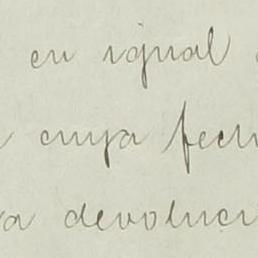 en igual
cuya fech
a devoluci